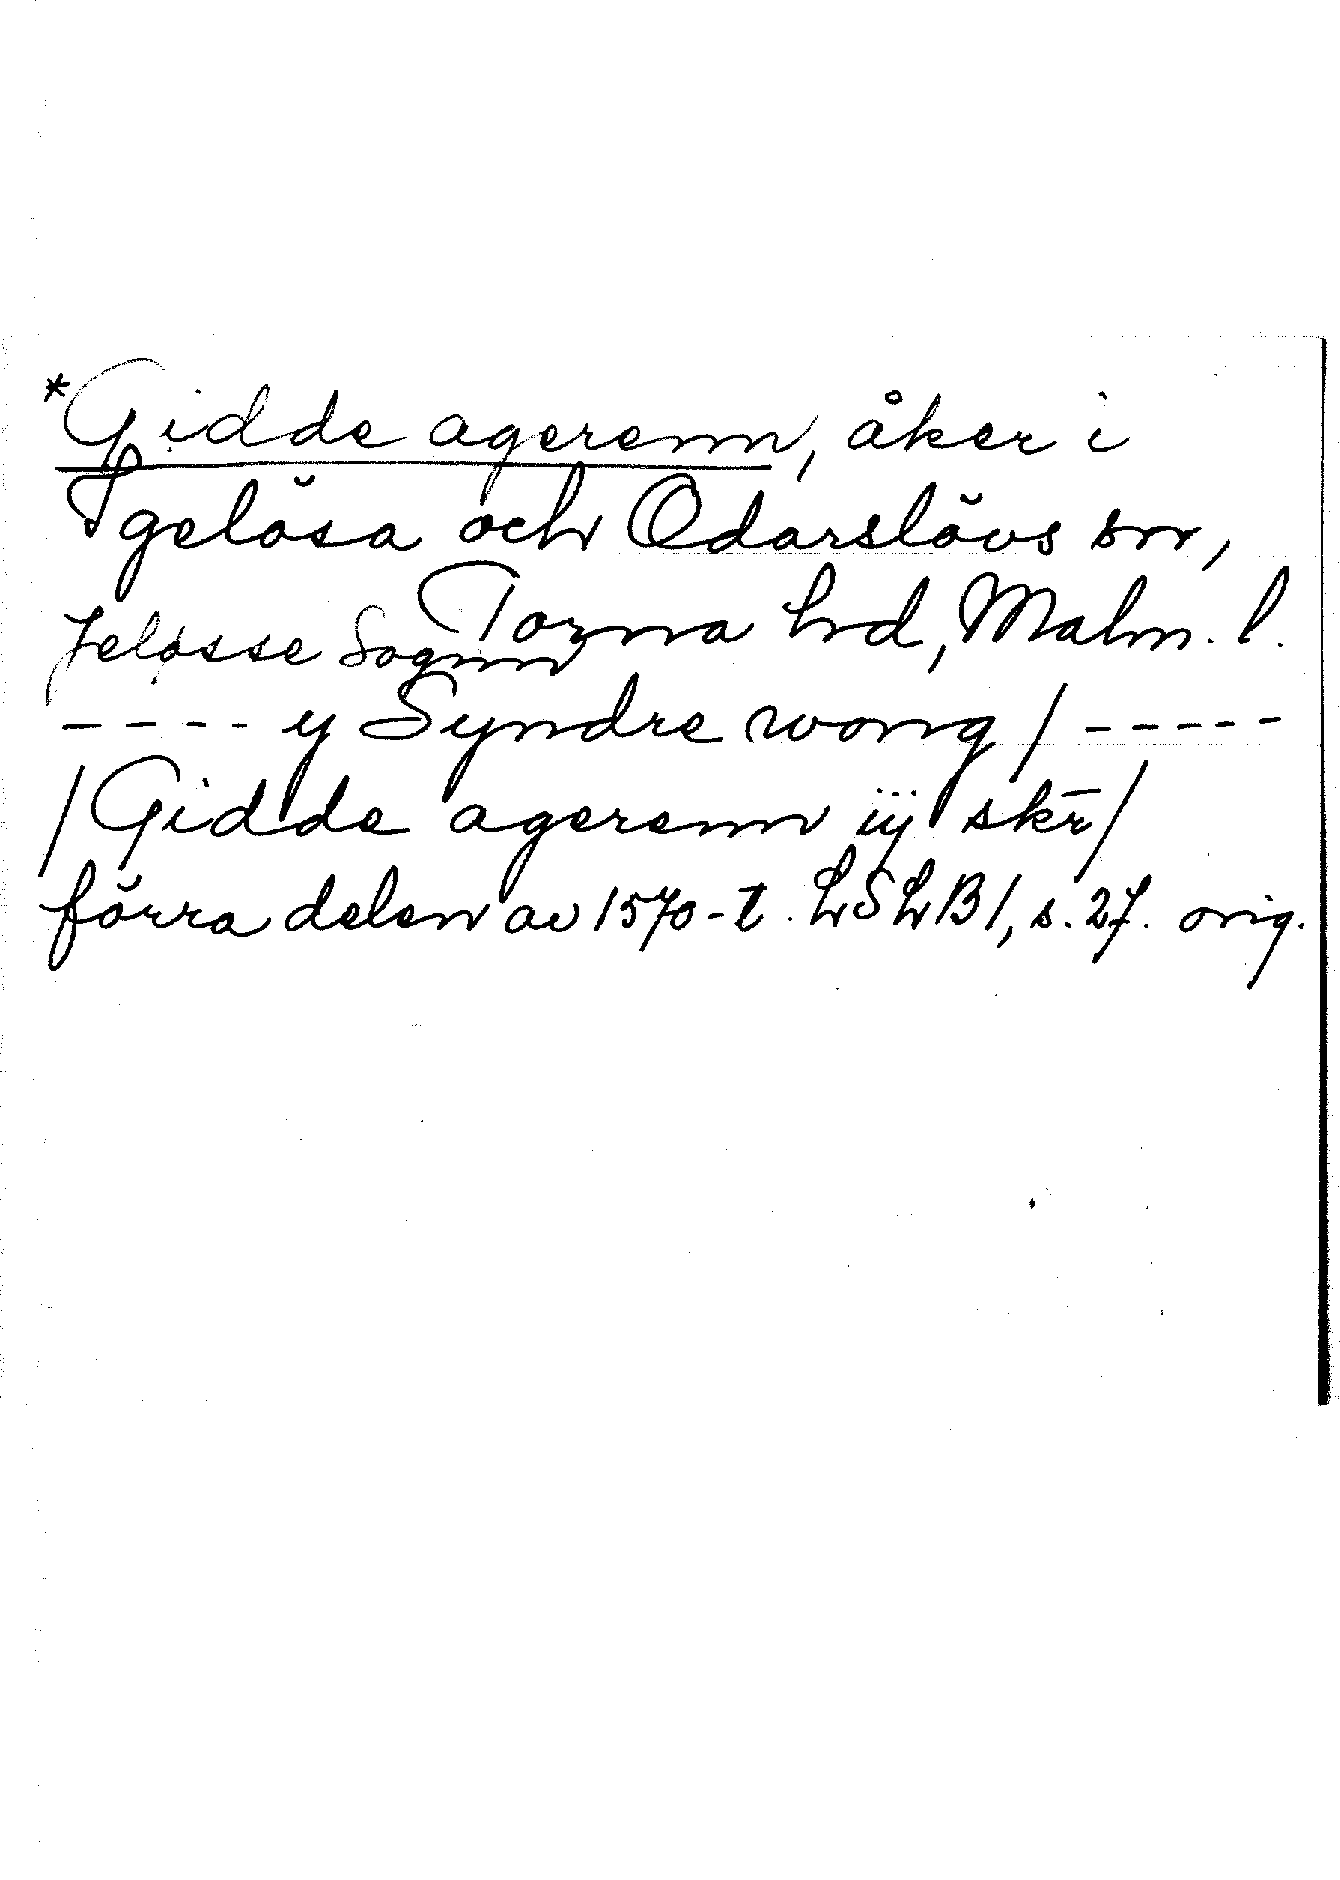 *Gidde agerenn, åker i
Igelösa och Odarslövs snr,
Torna hd, Malm. l.
Jeløsse Sognn
---- y Syndre wong / -----
/ Gidde agerenn iij skr̄ /
förra delen av 1570-t. LSLB1, s. 27. orig.